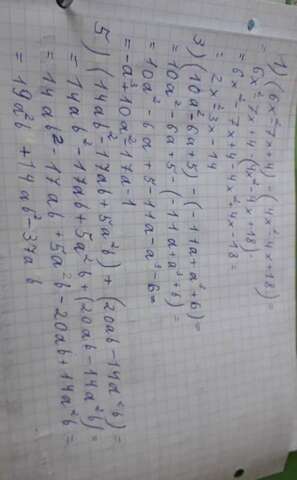 1) (6x²-7x+4) - (4x²-4x+18) =
= 6x²-7x+4 - (4x²-4x+18)
= 6x²-7x+4-4x²-4x-18 =
= 2x²-3x-14
3) (10a²-6a+5) - (-11a+a³+6) =
= 10a²-6a+5 - (-11a+a³+6) =
= 10a²-6a+5-11a-a³-6=
= -a³+10a²-17a-1
5) (14ab²-17ab+5a²b) + (20ab-14a²b) =
= 14ab²-17ab+5a²b + (20ab-14a²b) =
= 14ab²-17ab+5a²b-20ab+14a²b =
= 19a²b+14ab²-37ab